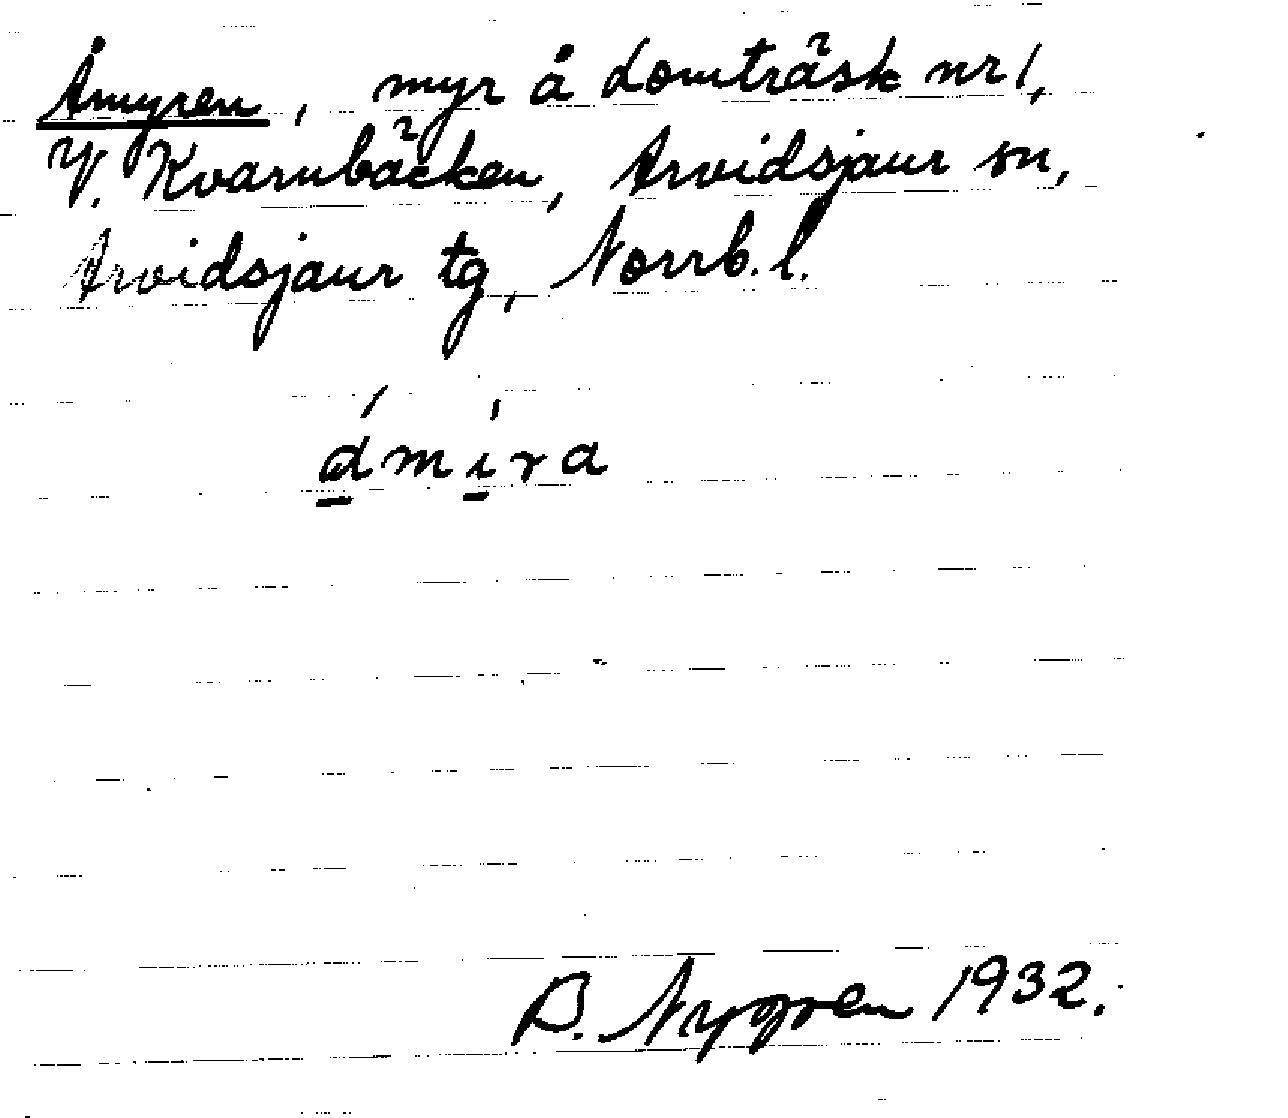 Åmyren, myr å Lomträsk nr 1,
V. Kvarnbäcken, Arvidsjaur sn,
Arvidsjaur tg, Norrb. l.
ámíra
B. Nygren 1932.